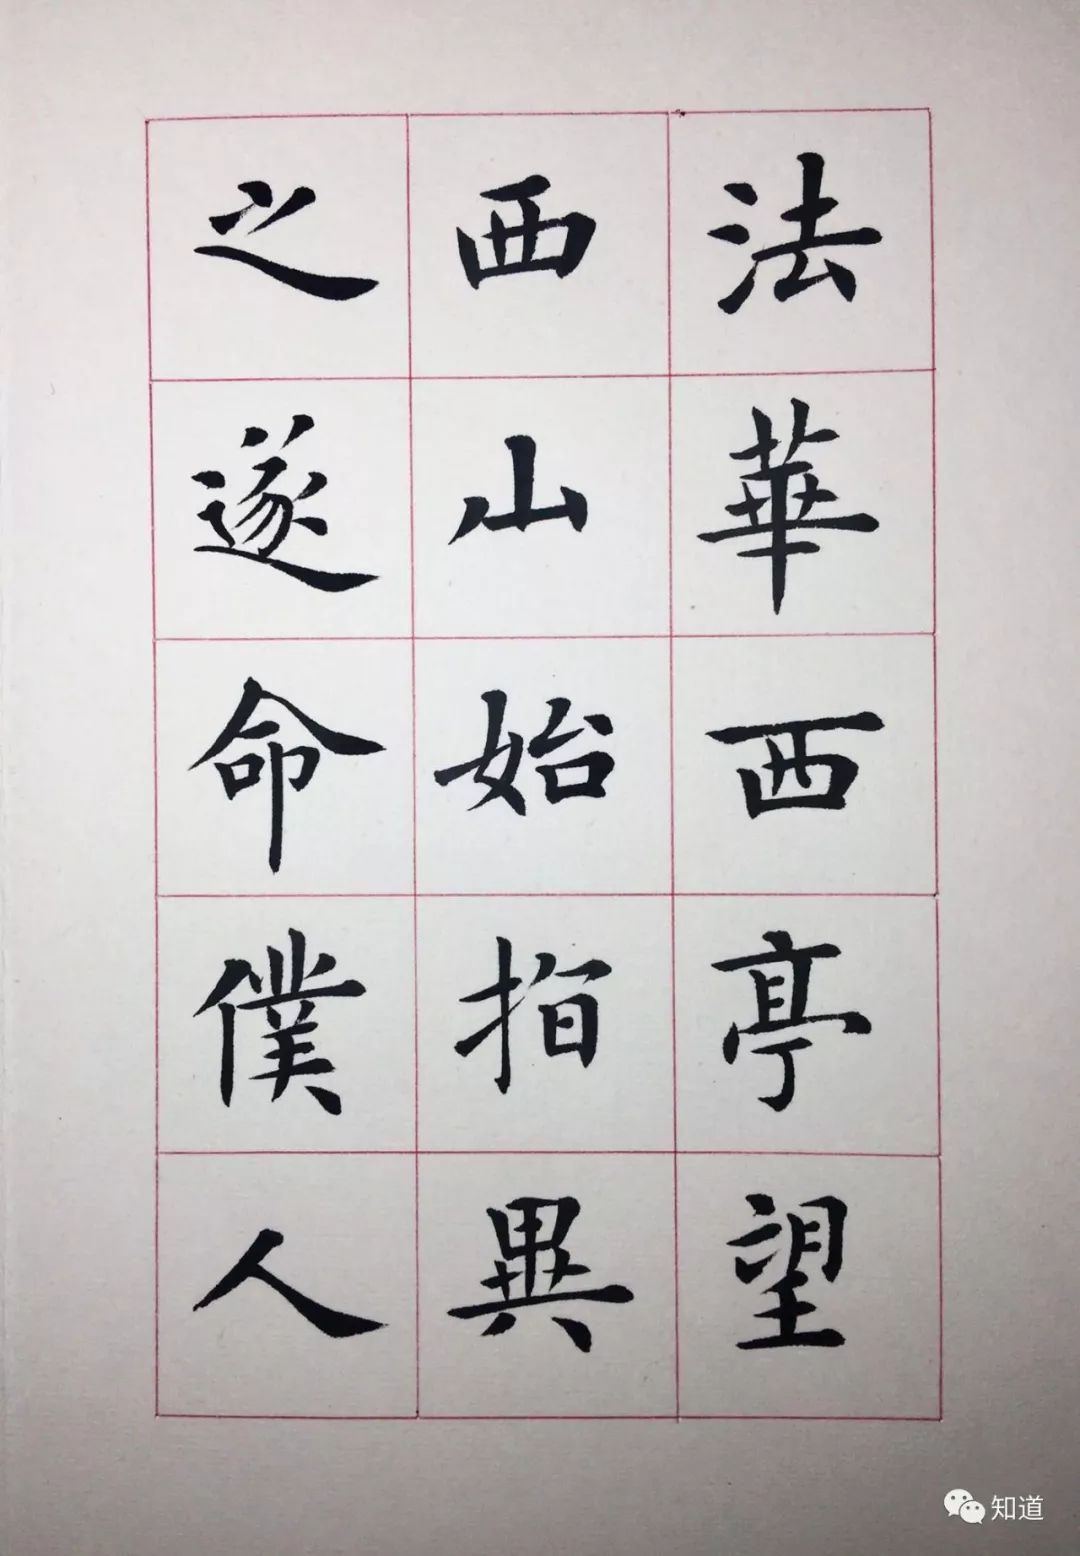 法華西亭望
西山始指異
之遂命僕人
知道